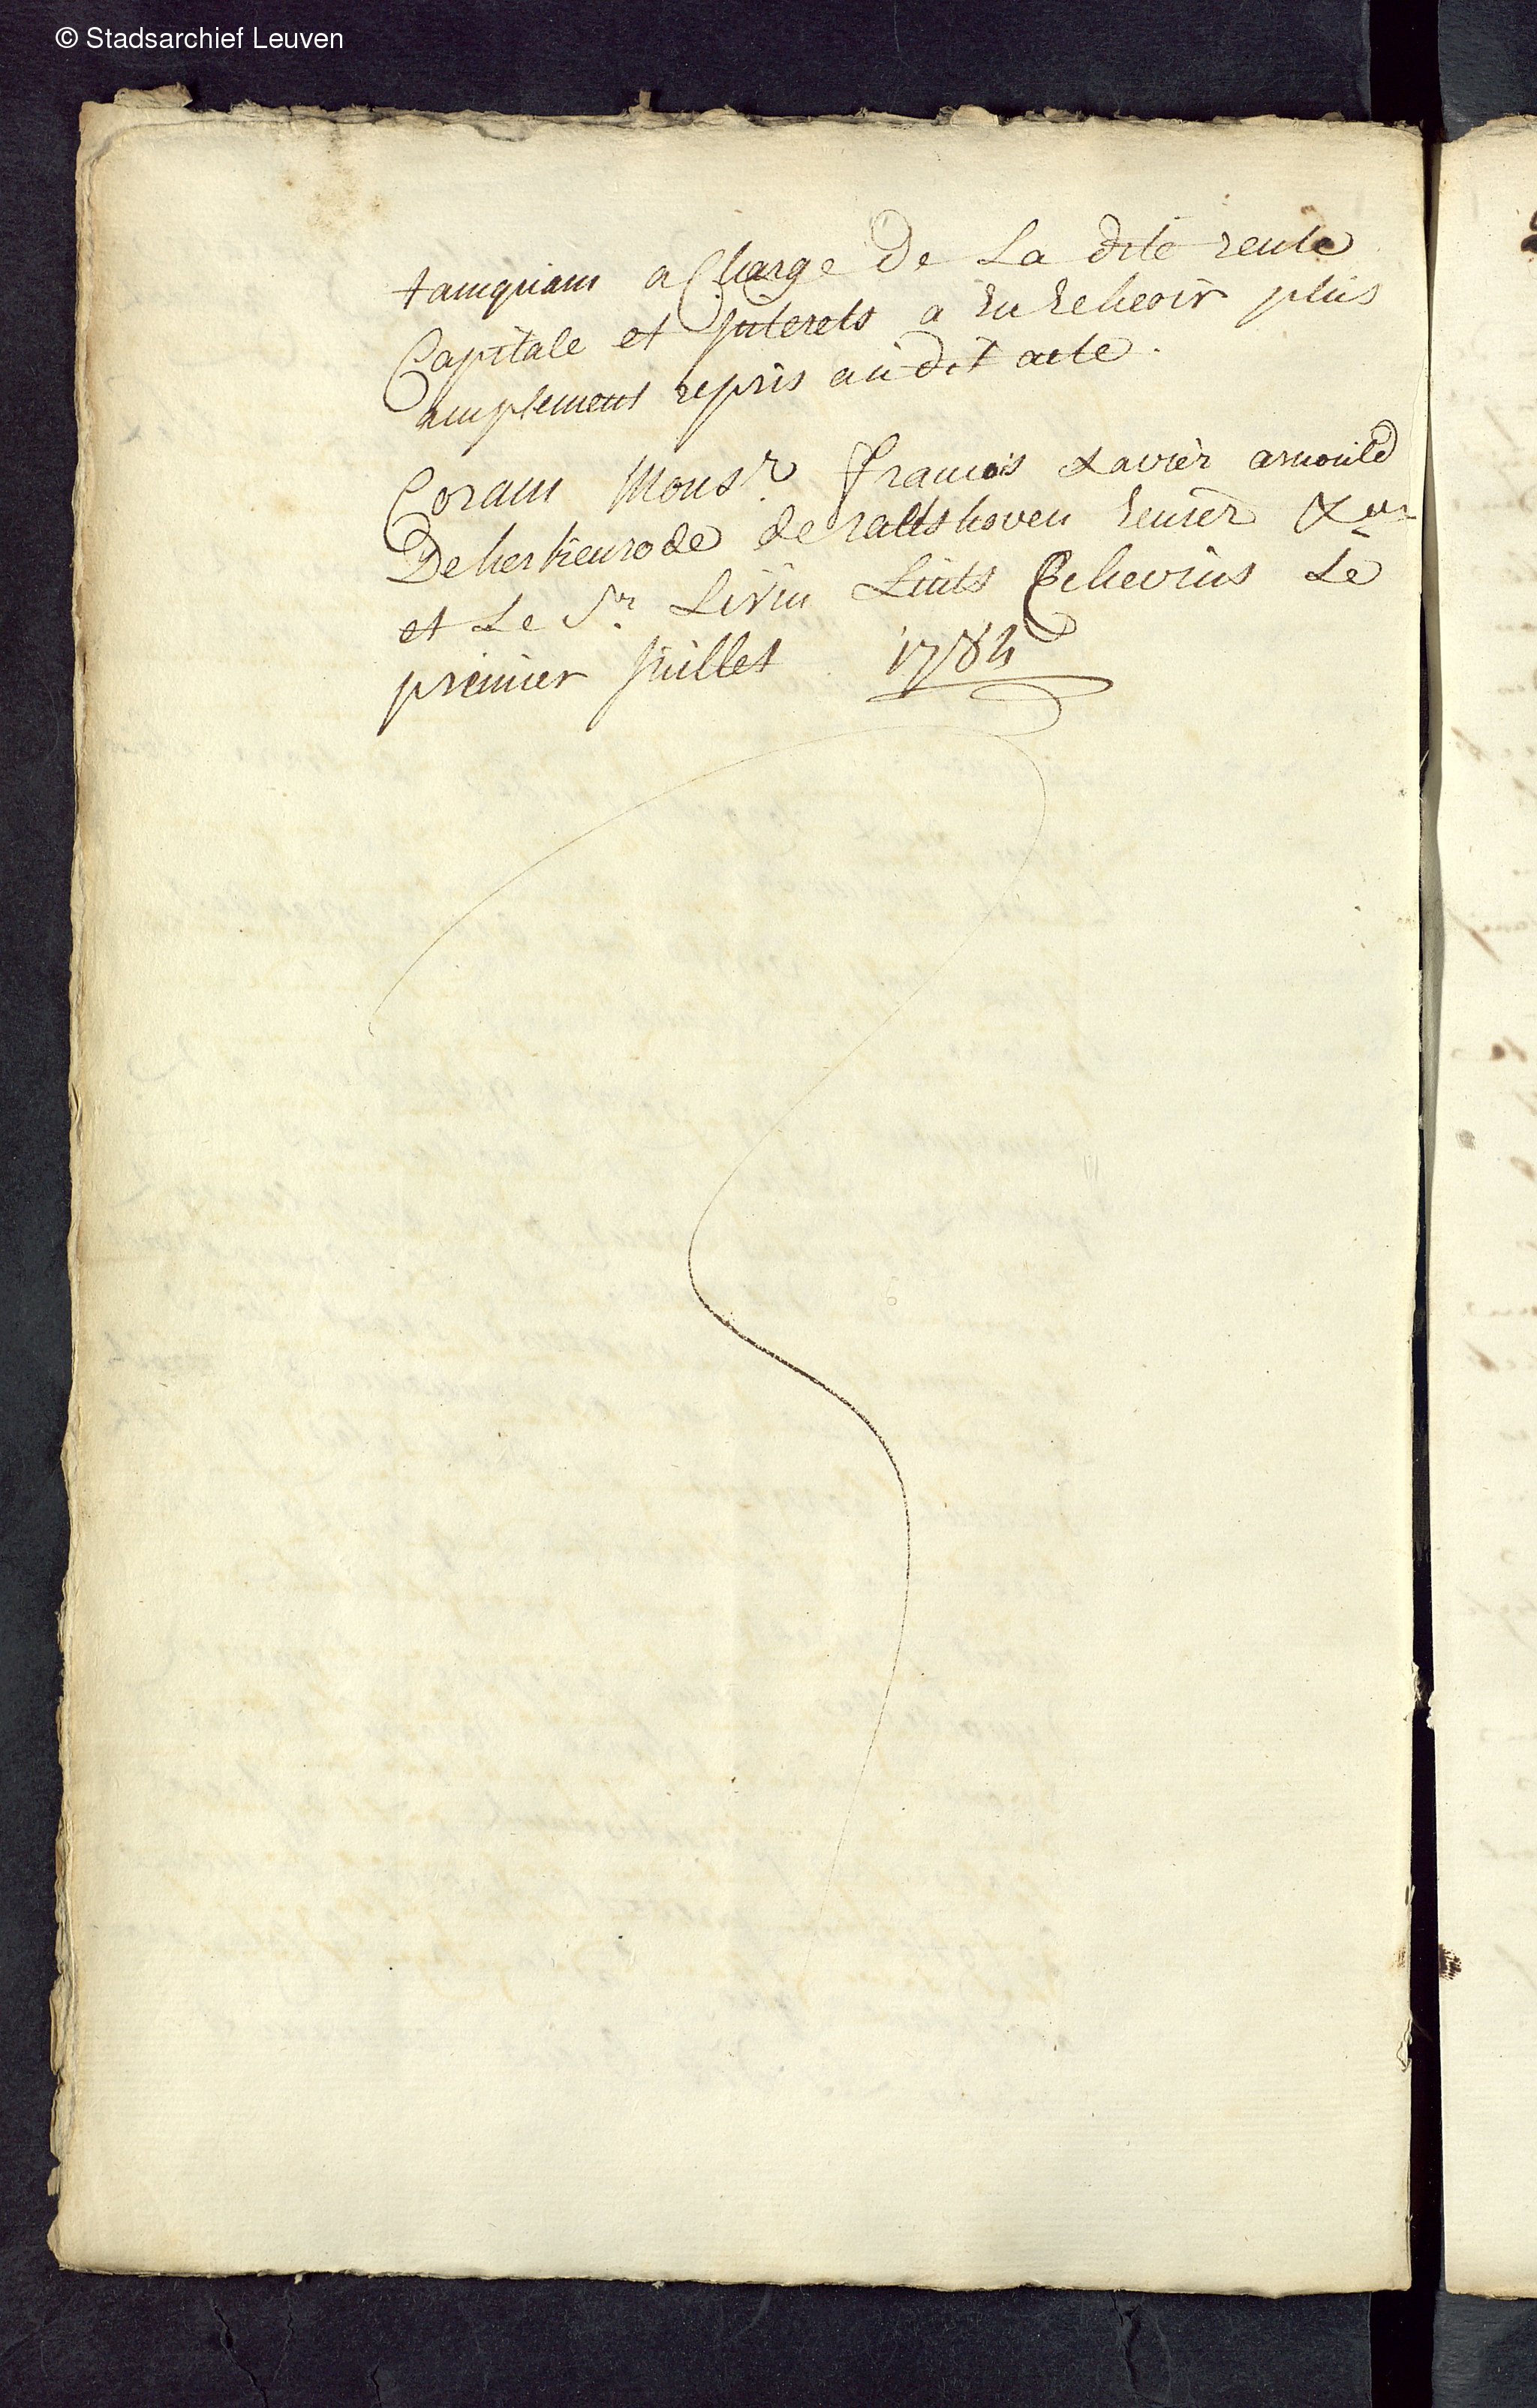 © Stadsarchief Leuven
tamquam a Charge De La dite rente
Capitale et Interets a En Echeoir plus
amplement repris au dit acte.
Coram Monsr. François Xavier arnould
De herkenrode de raltshoven &a
et Le Sr. Livin Lints Echevins Le
premier Juillet 1784